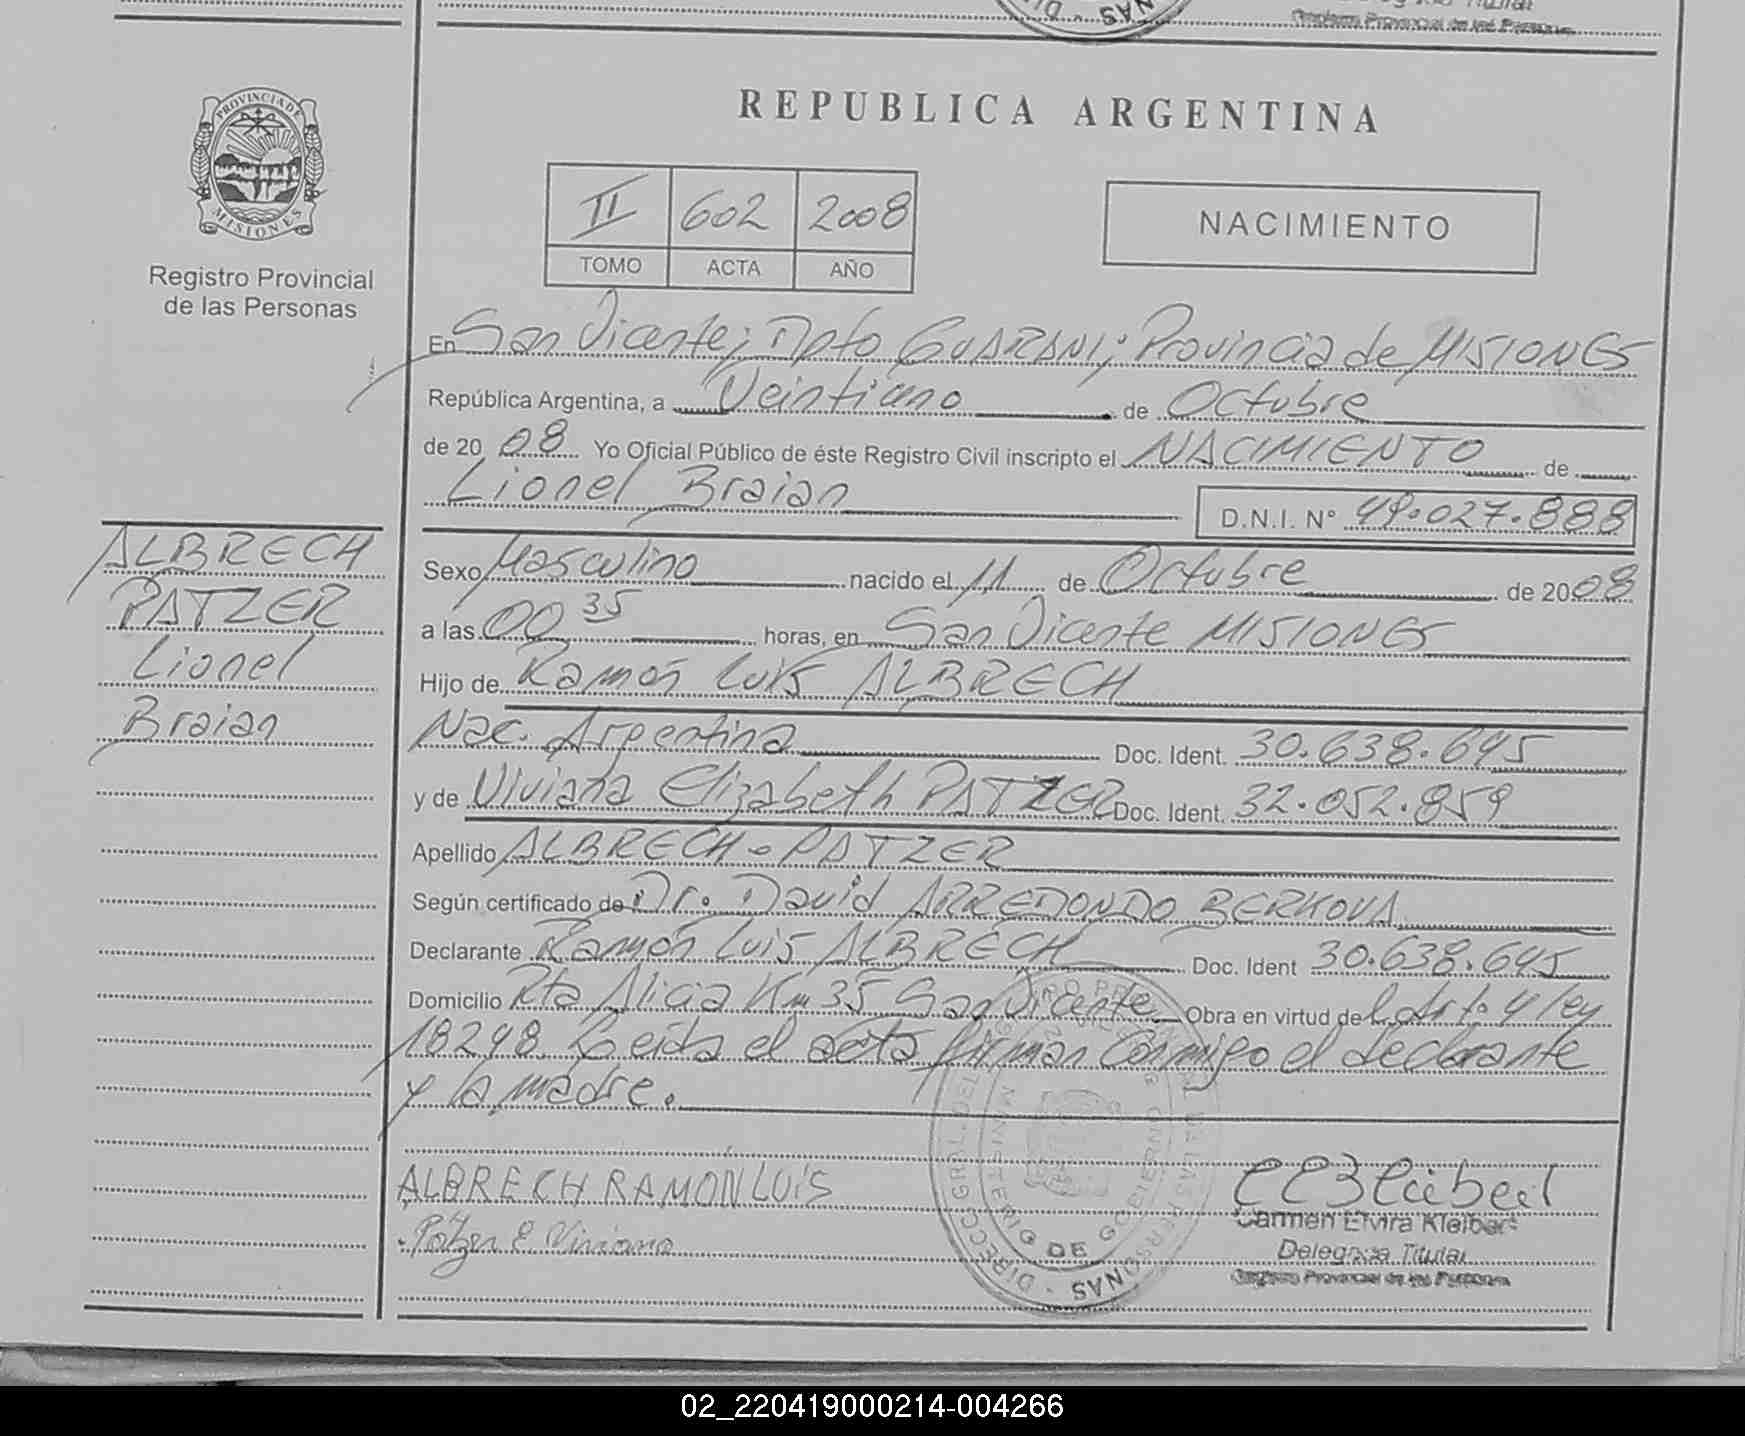 Registro Provincial de las Personas
PROVINCIA DE
MISIONES
Registro Provincial
de las Personas
REPUBLICA ARGENTINA
II 602 2008
TOMO ACTA AÑO
NACIMIENTO
En San Vicente; Dpto GUARANI; Provincia de MISIONES
República Argentina, a Veintiuno de Octubre
de 20 08 Yo Oficial Público de éste Registro Civil inscripto el NACIMIENTO de
Lionel Braian D.N.I. N° 49.027.888
ALBRECH
PATZER
Lionel
Braian
Sexo Masculino nacido el 11 de Octubre de 20 08
a las 00 35 horas, en San Vicente MISIONES
Hijo de Ramón Luis ALBRECH
Nac. Argentina Doc. Ident. 30.638.645
y de Viviana Elizabeth PATZER Doc. Ident. 32.052.859
Apellido ALBRECH - PATZER
Según certificado de Dr. David ARREDONDO BERKOVA
Declarante Ramón Luis ALBRECH Doc. Ident 30.638.645
Domicilio Rta Alicia Km 35 San Vicente Obra en virtud del Art. 4 ley
18248. Leida el acta firman conmigo el declarante
y la madre.
ALBRECH RAMON LUIS
Patzer E. Viviana
Carmen Elvira Kleibert
Delegada Titular
Registro Provincial de las Personas
MINISTERIO DE GOBIERNO
02_220419000214-004266